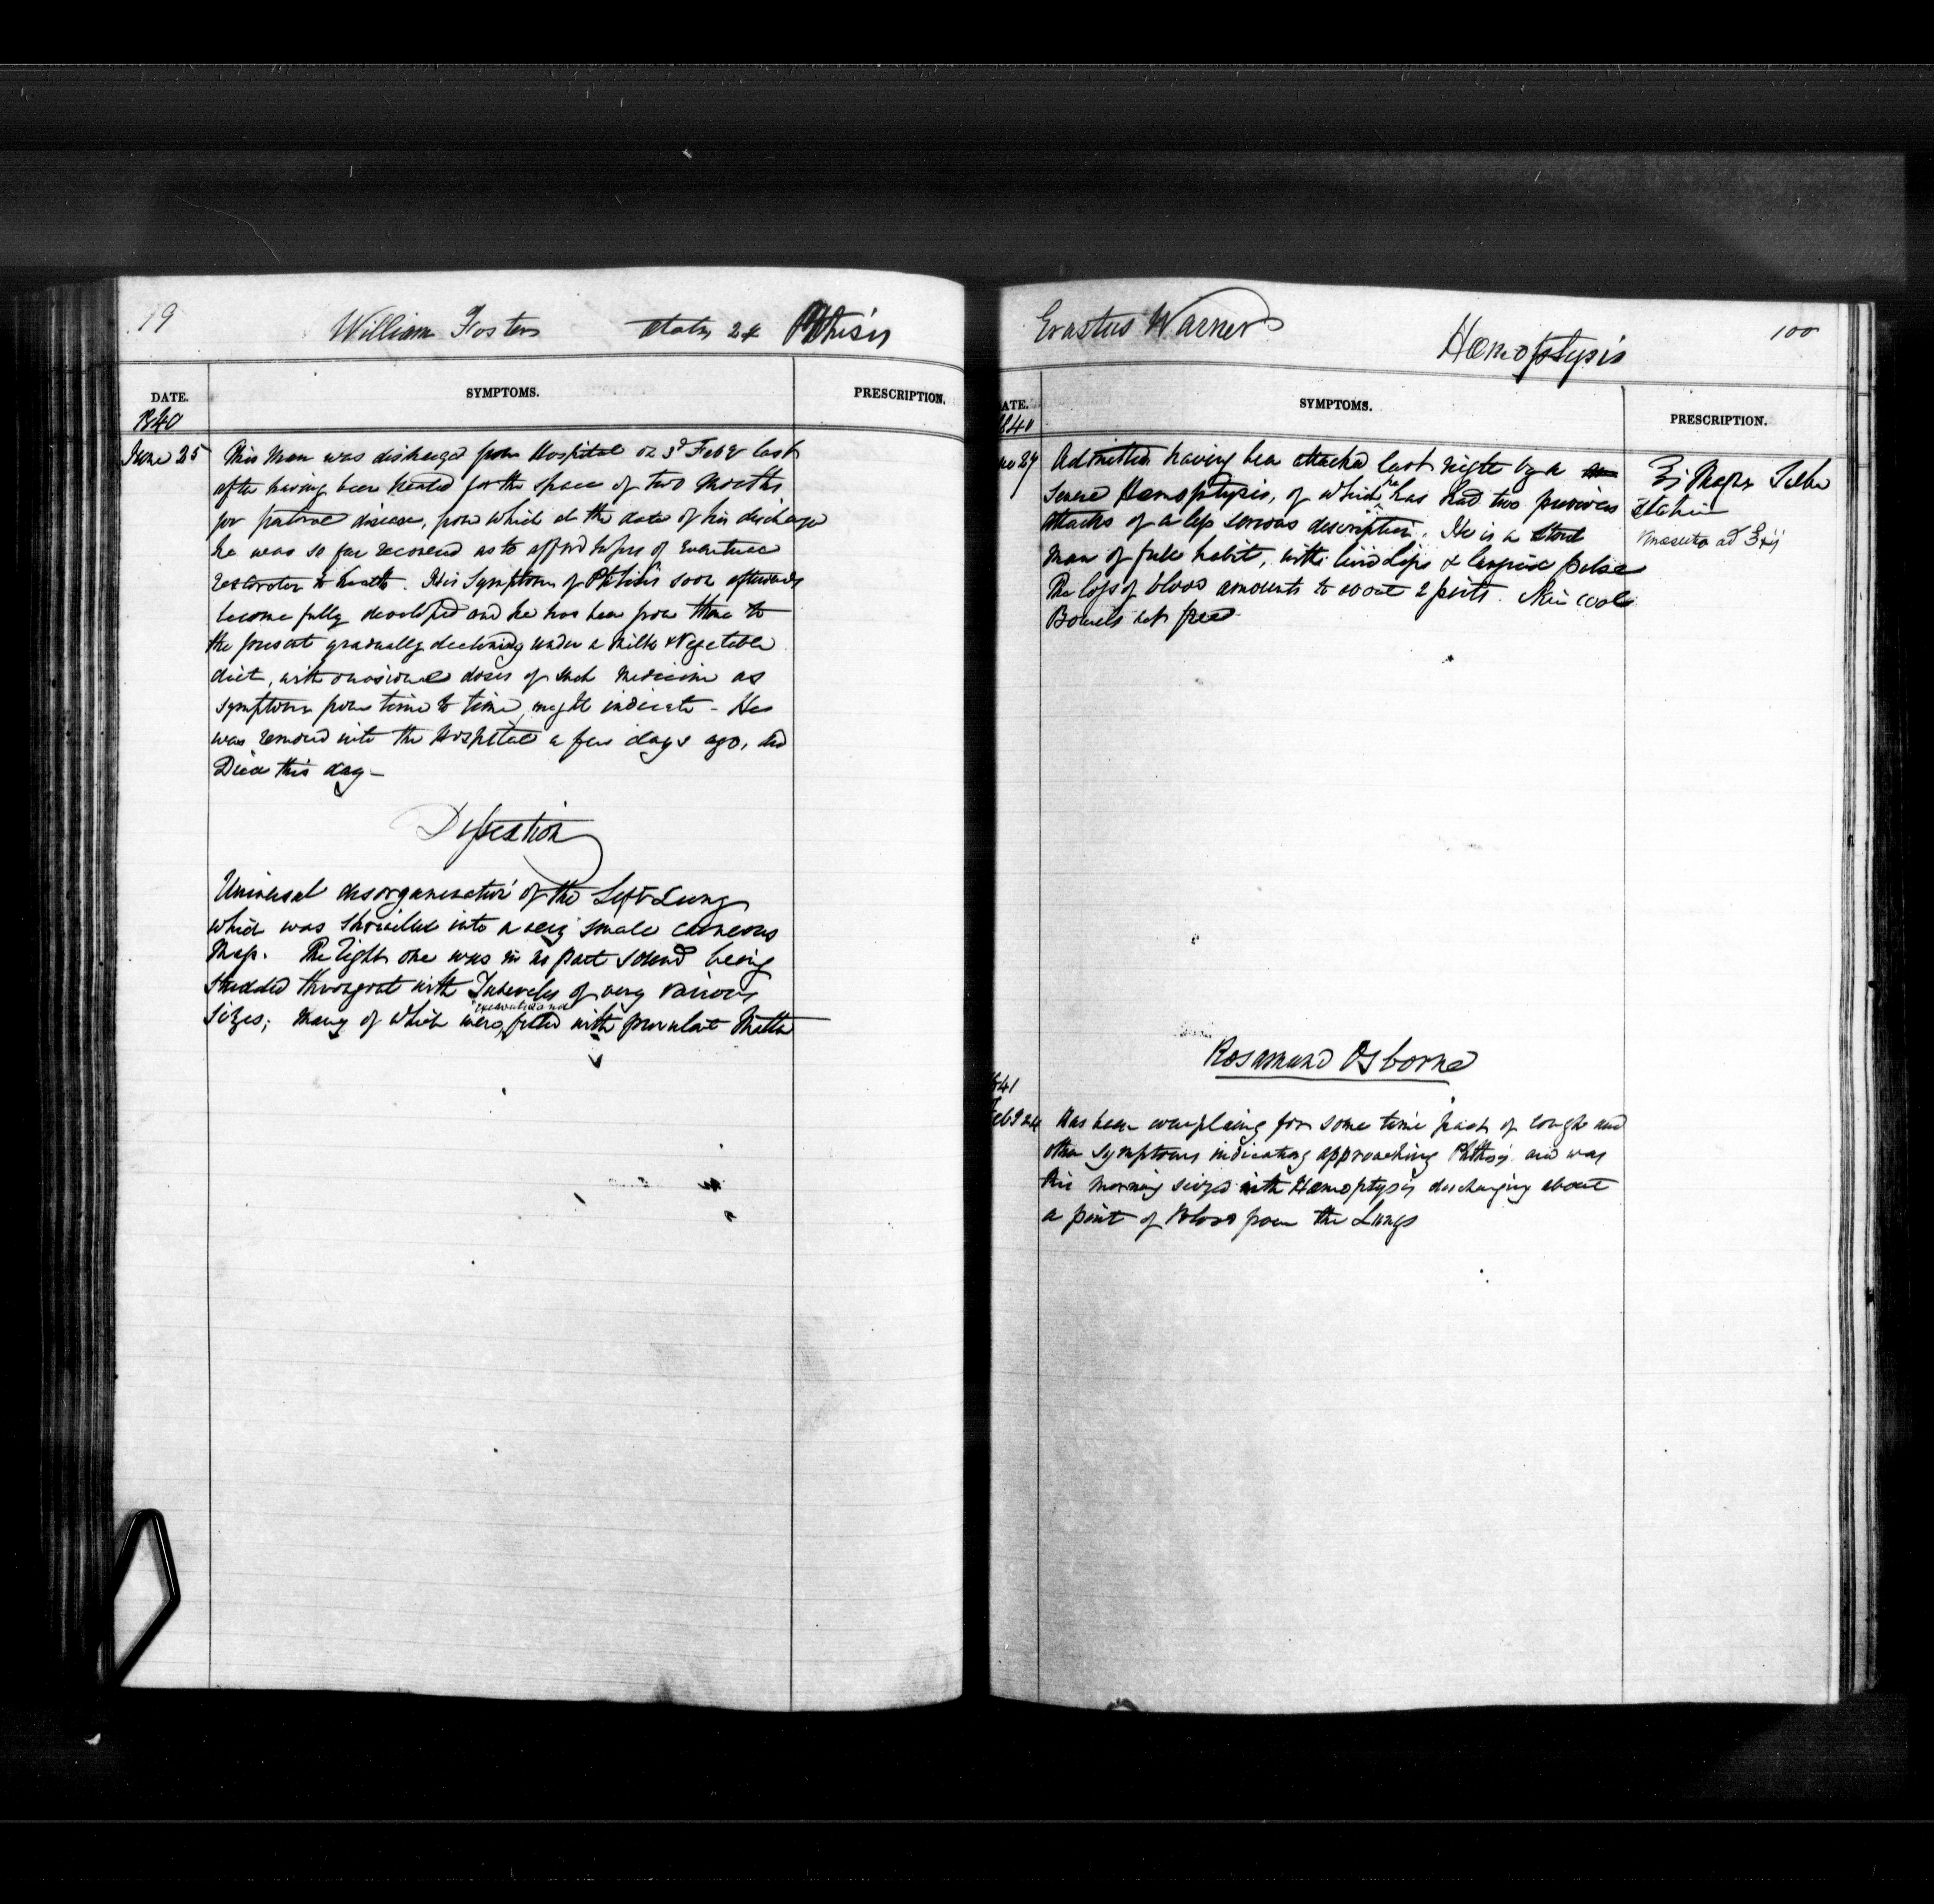 19
William Foster Aetat 24 Phthisis
DATE. SYMPTOMS. PRESCRIPTION.
1840
June 25 This Man was discharged from Hospital on 3d Feby last
after having been treated for the space of two Months
for disease, from which at the date of his discharge
he was so far recovered as to afford hopes of eventual
restoration to health. His Symptoms of Phthisis soon afterwards
became fully developed and he has been from thence to
the present gradually declining under a Milk & Vegetable
diet, with occasional doses of such medicine as
symptoms from time to time might indicate - He
was removed into the Hospital a few days ago, and
Died this day -
Dissection
Universal disorganization of the Left Lung
which was shrivelled into a very small
Mass. The right one was in no part sound being
studded throughout with Tubercles of very various
Sizes; many of which were excavated and filled with purulent Matter
Erastus Warner
Hæmoptysis
100
DATE. SYMPTOMS. PRESCRIPTION.
1840
27 Admitted having been attacked last night by a
severe Hæmoptysis, of which he has had two previous
attacks of a less serious description. He is a stout
man of full habit, with livid lips & languid pulse
The loss of blood amounts to about 2 pints. Skin cool
Bowels not freed
statim
ad ℥xij
Rosamund Osborne
1841
Feby 24 Has been complaining for some time past of cough and
other symptoms indicating approaching Phthisis and was
this morning seized with Hæmoptysis discharging about
a pint of Blood from the Lungs